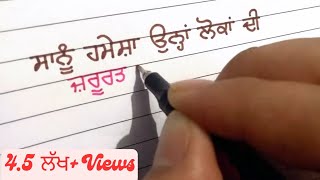 ਸਾਨੂੰ ਹਮੇਸ਼ਾ ਉਨ੍ਹਾਂ ਲੋਕਾਂ ਦੀ
ਜ਼ਰੂਰਤ
4.5 ਲੱਖ+ Views